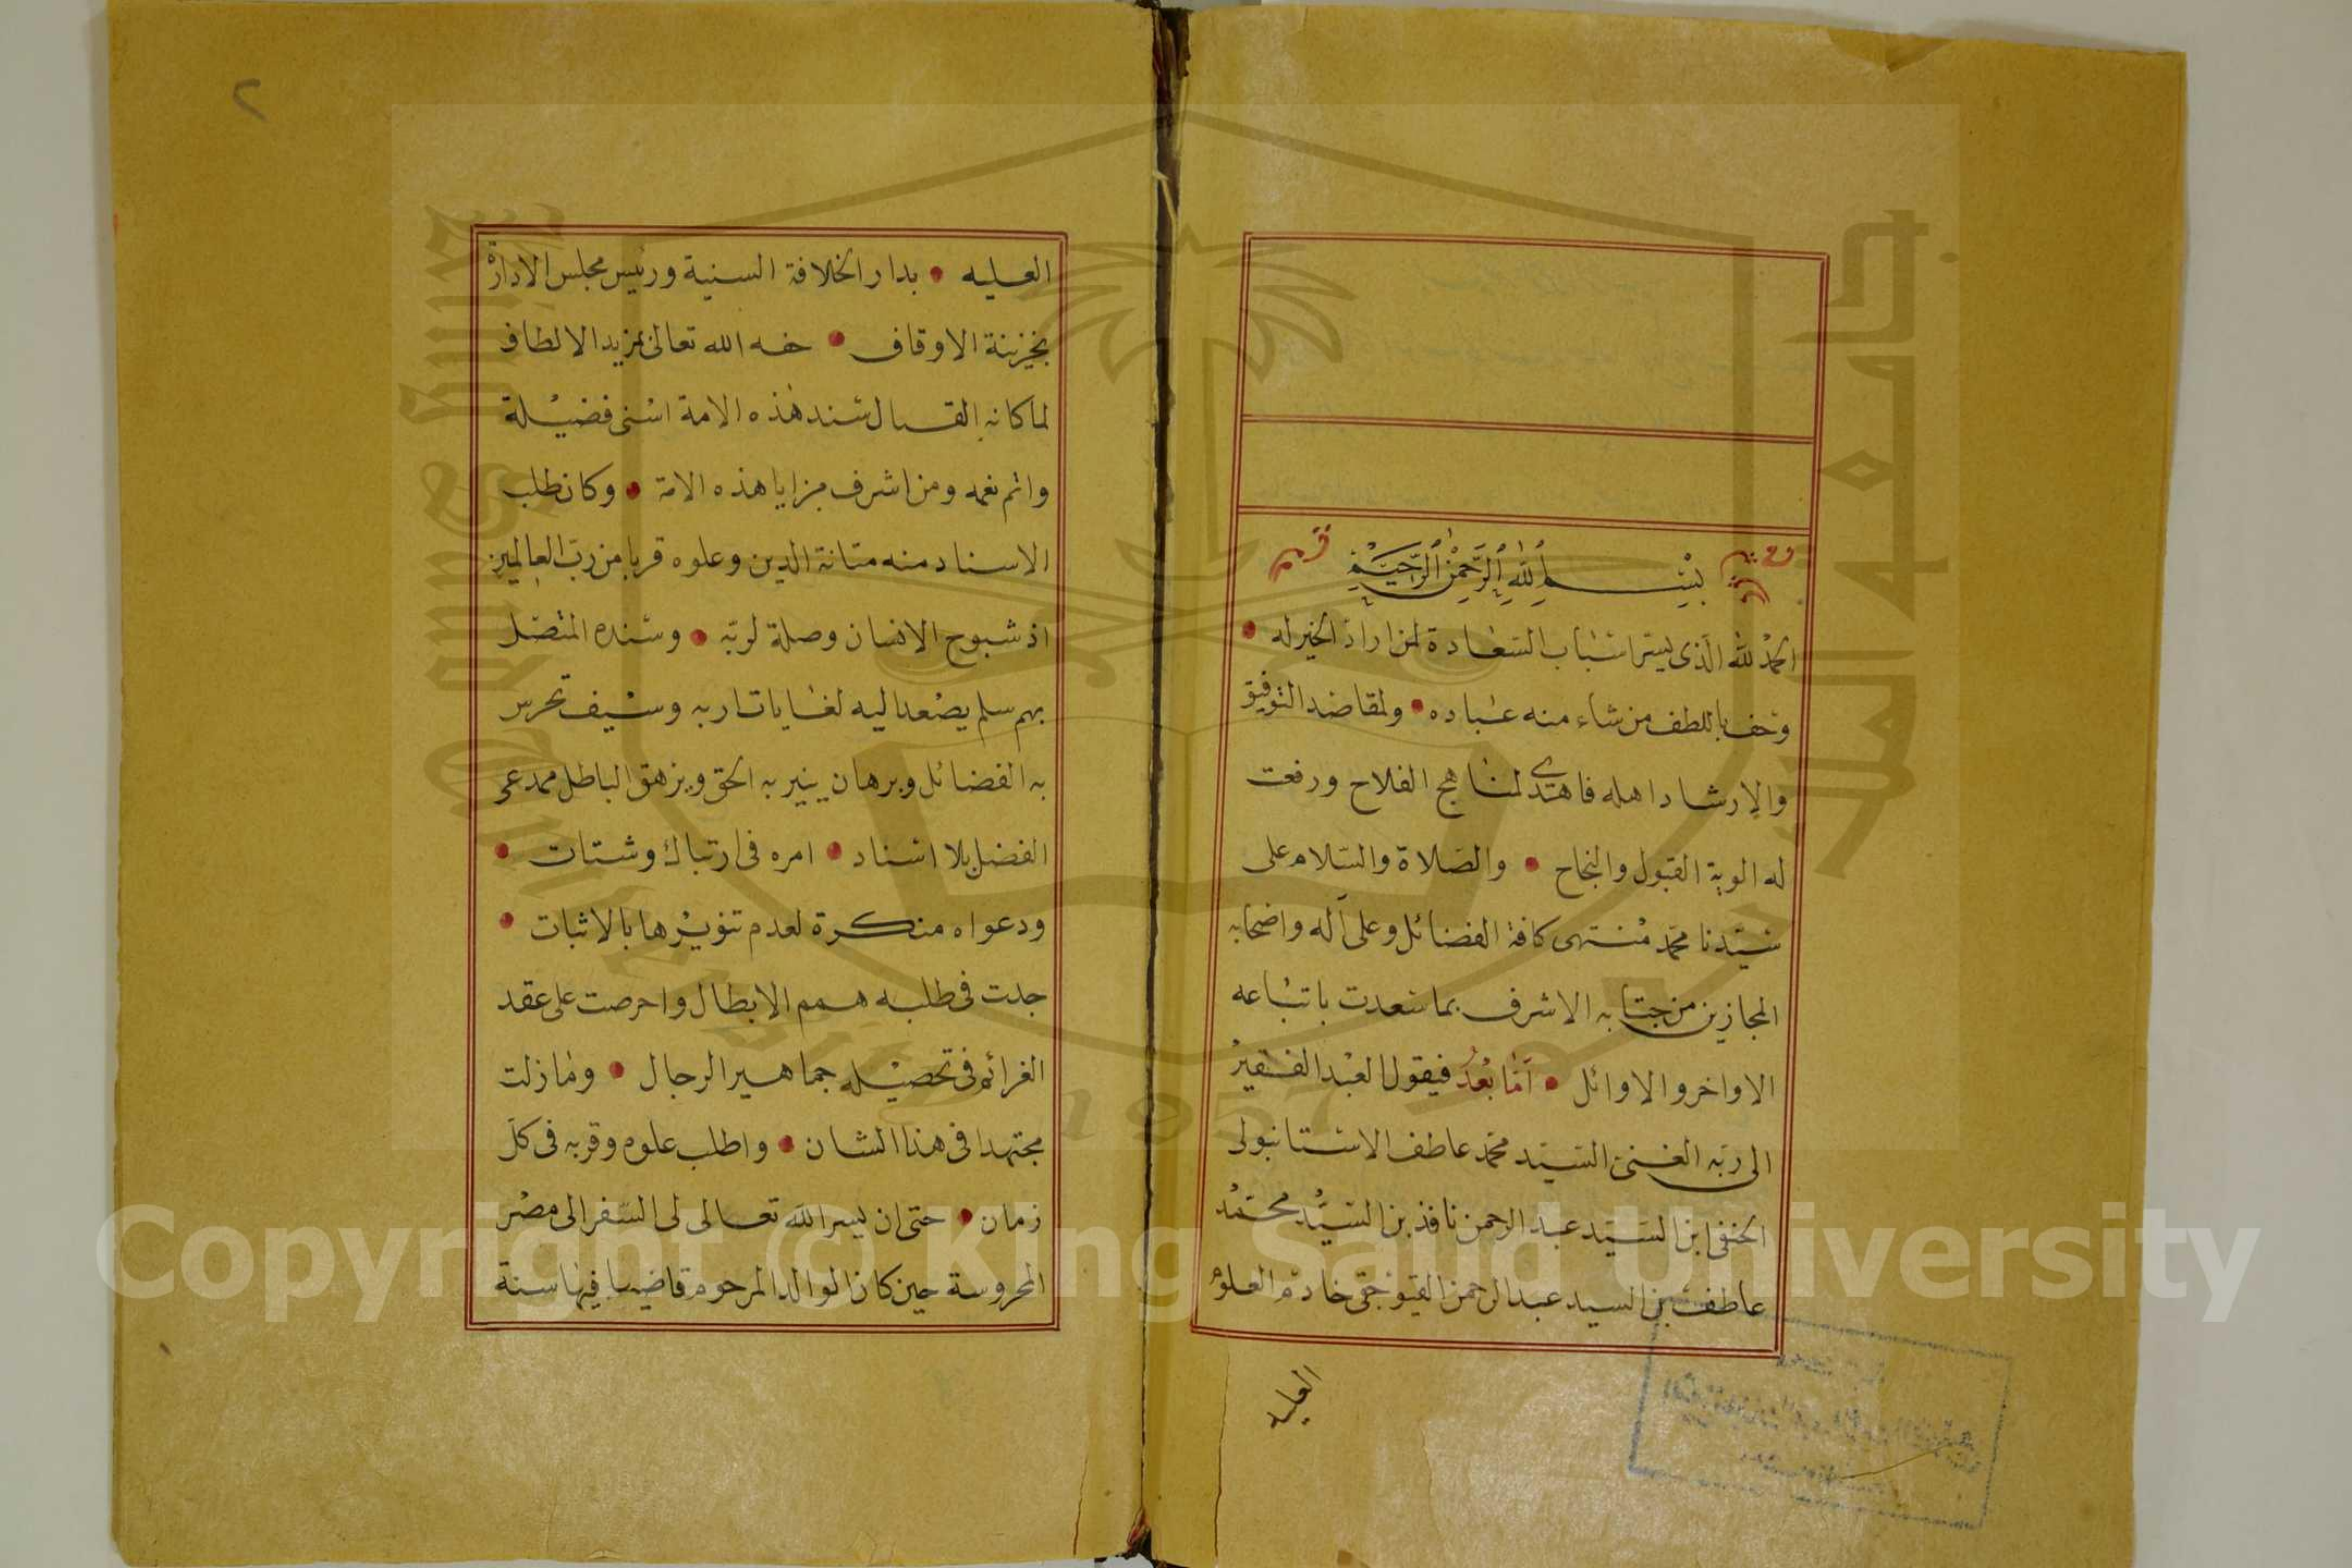 بسم الله الرحمن الرحيم
الحمد لله الذى يسر اسباب السعادة لمن اراد الخير له
وخف باللطف من شاء منه عباده ولمقاصد التوفيق
والإرشاد اهله فاهتدى لمناهج الفلاح ورفعت
له الوية القبول والنجاح والصلاة والسلام على
سيدنا محمد منتهى كافة الفضائل وعلى آله واصحابه
المجازين من جنابه الاشرف بما سعدت باتباعه
الاواخر والاوائل أما بعد فيقول العبد الفقير
الى ربه الغنى السيد محمد عاطف الاستانبولى
الحنفى ابن السيد عبد الرحمن نافذ بن السيد محمد
عاطف بن السيد عبد الرحمن القيوجقى خادم العلوم
العليه
٢
العليه بدار الخلافة السنية ورئيس مجلس الادارة
بخزينة الاوقاف حفه الله تعالى بمزيد الالطاف
لما كان لسند هذه الامة اسنى فضيلة
واتم نعمه ومن اشرف مزايا هذه الامة وكان طلب
الاسناد منه متانة الدين وعلوه قربا من رب العالمين
اذ شيوخ الانسان وصلة لربه وسنده المتصل
بهم سلم يصعد اليه لغايات اربه وسيف تحرس
به الفضائل وبرهان ينير به الحق ويزهق الباطل فمدعى
الفضل بلا اسناد امره فى ارتباك وشتات
ودعواه منكرة لعدم تنويرها بالاثبات
جدت فى طلبه همم الابطال واحرصت على عقد
الغرائم فى تحصيله جماهير الرجال وما زلت
مجتهدا فى هذا الشان واطلب علوه وقربه فى كل
زمان حتى ان يسر الله تعالى لى السفر الى مصر
المحروسة حين كان الوالد المرحوم قاضيا فيها سنة
جامعة الملك سعود
1957
Copyright © King Saud University